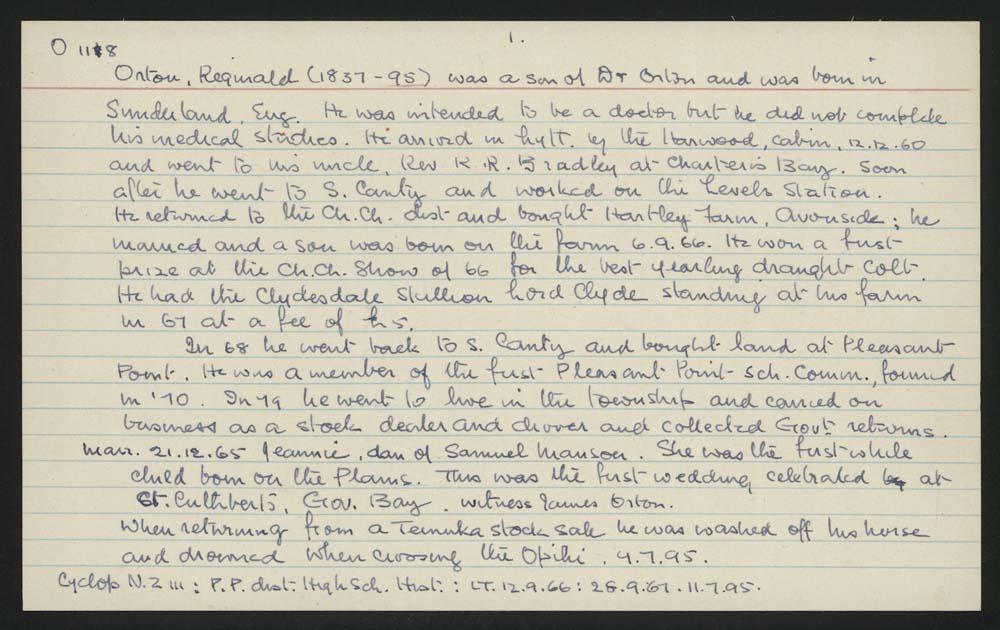 1.
O 118
Orton, Reginald (1837-95) was a son of Dr Orton and was born in
Sunderland, Eng. He was intended to be a doctor but he did not complete
his medical studies. He arrived in Lyttt. by the Harwood, cabin, 12.12.60
and went to his uncle, Rev R. R. Bradley at Charteris Bay. Soon
after he went to S. Canty and worked on the Levels Station.
He returned to the Ch.Ch. dist and bought Hartley Farm, Avonside; he
married and a son was born on the farm 6.9.66. He won a first
prize at the Ch.Ch. Show of 66 for the best yearling draught colt.
He had the Clydesdale Stallion Lord Clyde standing at his farm
in 67 at a fee of £5.
In 68 he went back to S. Canty and bought land at Pleasant
Point. He was a member of the first Pleasant Point Sch. Comm., formed
in '70. In 79 he went to live in the township and carried on
business as a stock dealer and drover and collected Govt returns.
marr. 21.12.65 Jeannie, dau of Samuel Manson. She was the first white
child born on the Plains. This was the first wedding celebrated at
St. Cuthbert's, Gov. Bay. witness James Orton.
When returning from a Temuka stock sale he was washed off his horse
and drowned when crossing the Opihi. 4.7.95.
Cyclop N.Z III : P.P. dist. High Sch. Hist. : LT. 12.9.66 : 28.9.67. 11.7.95.